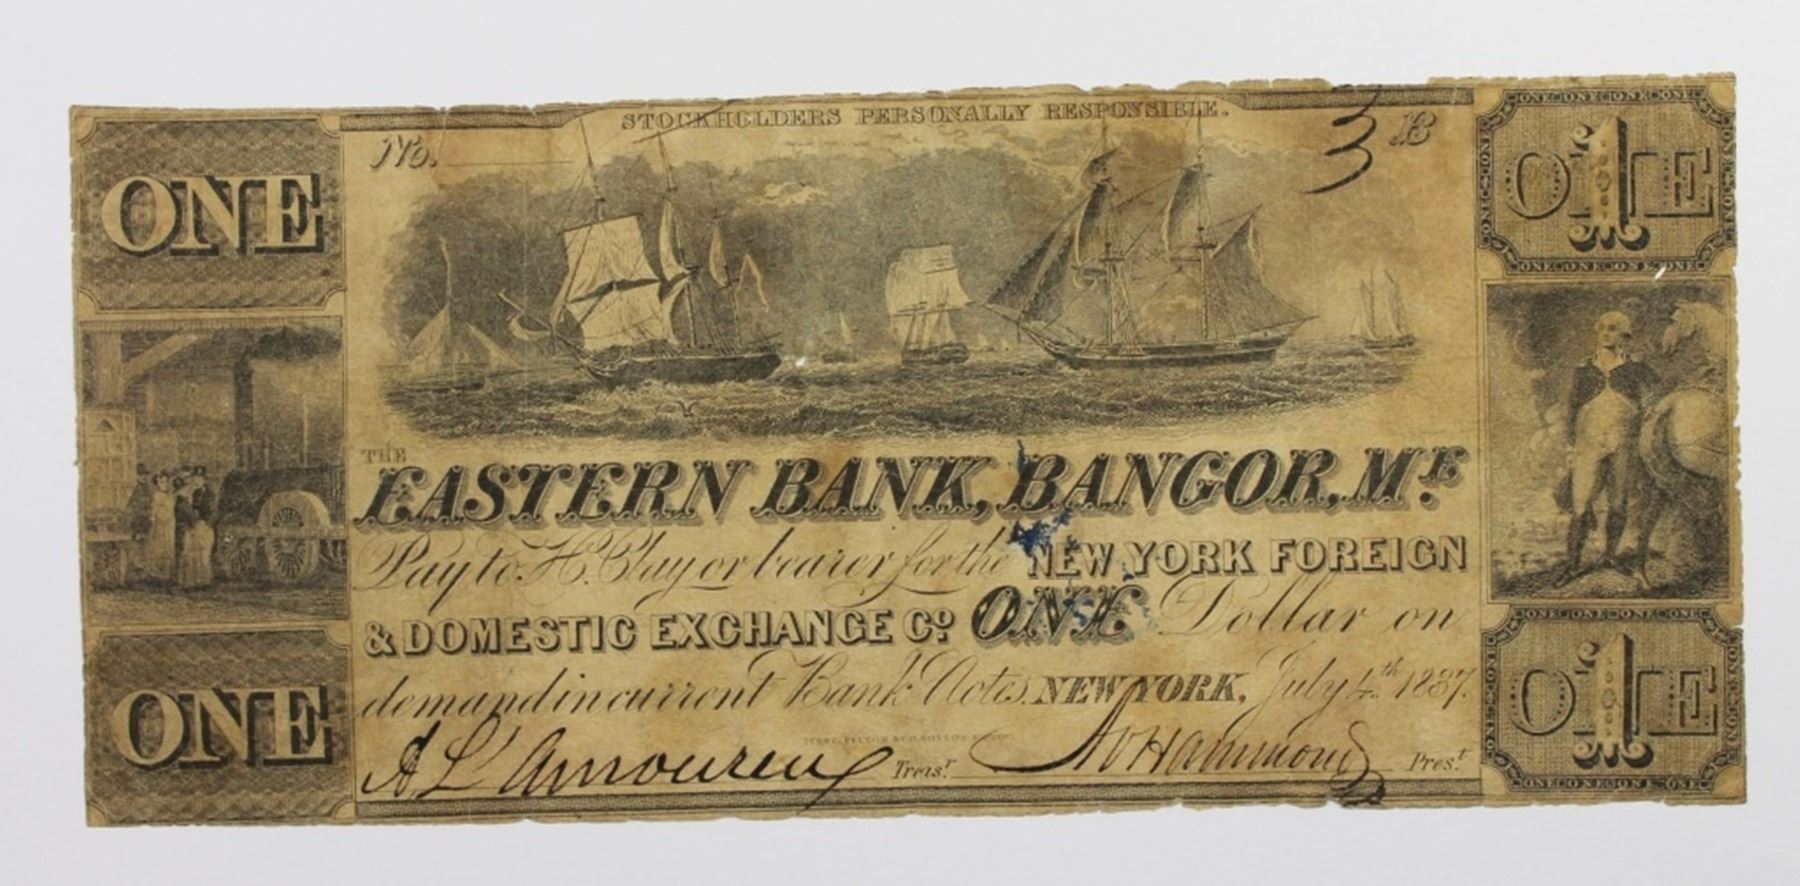 STOCKHOLDERS PERSONALLY RESPONSIBLE.
No. 3 B
ONE
ONE
ONE 1
ONE 1
THE
EASTERN BANK, BANGOR, ME.
Pay to H. Clay or bearer for the NEW YORK FOREIGN
& DOMESTIC EXCHANGE Co ONE Dollar on
demand in current Bank Notes. NEW YORK, July 4th 1837.
Treasr Hammond Prest